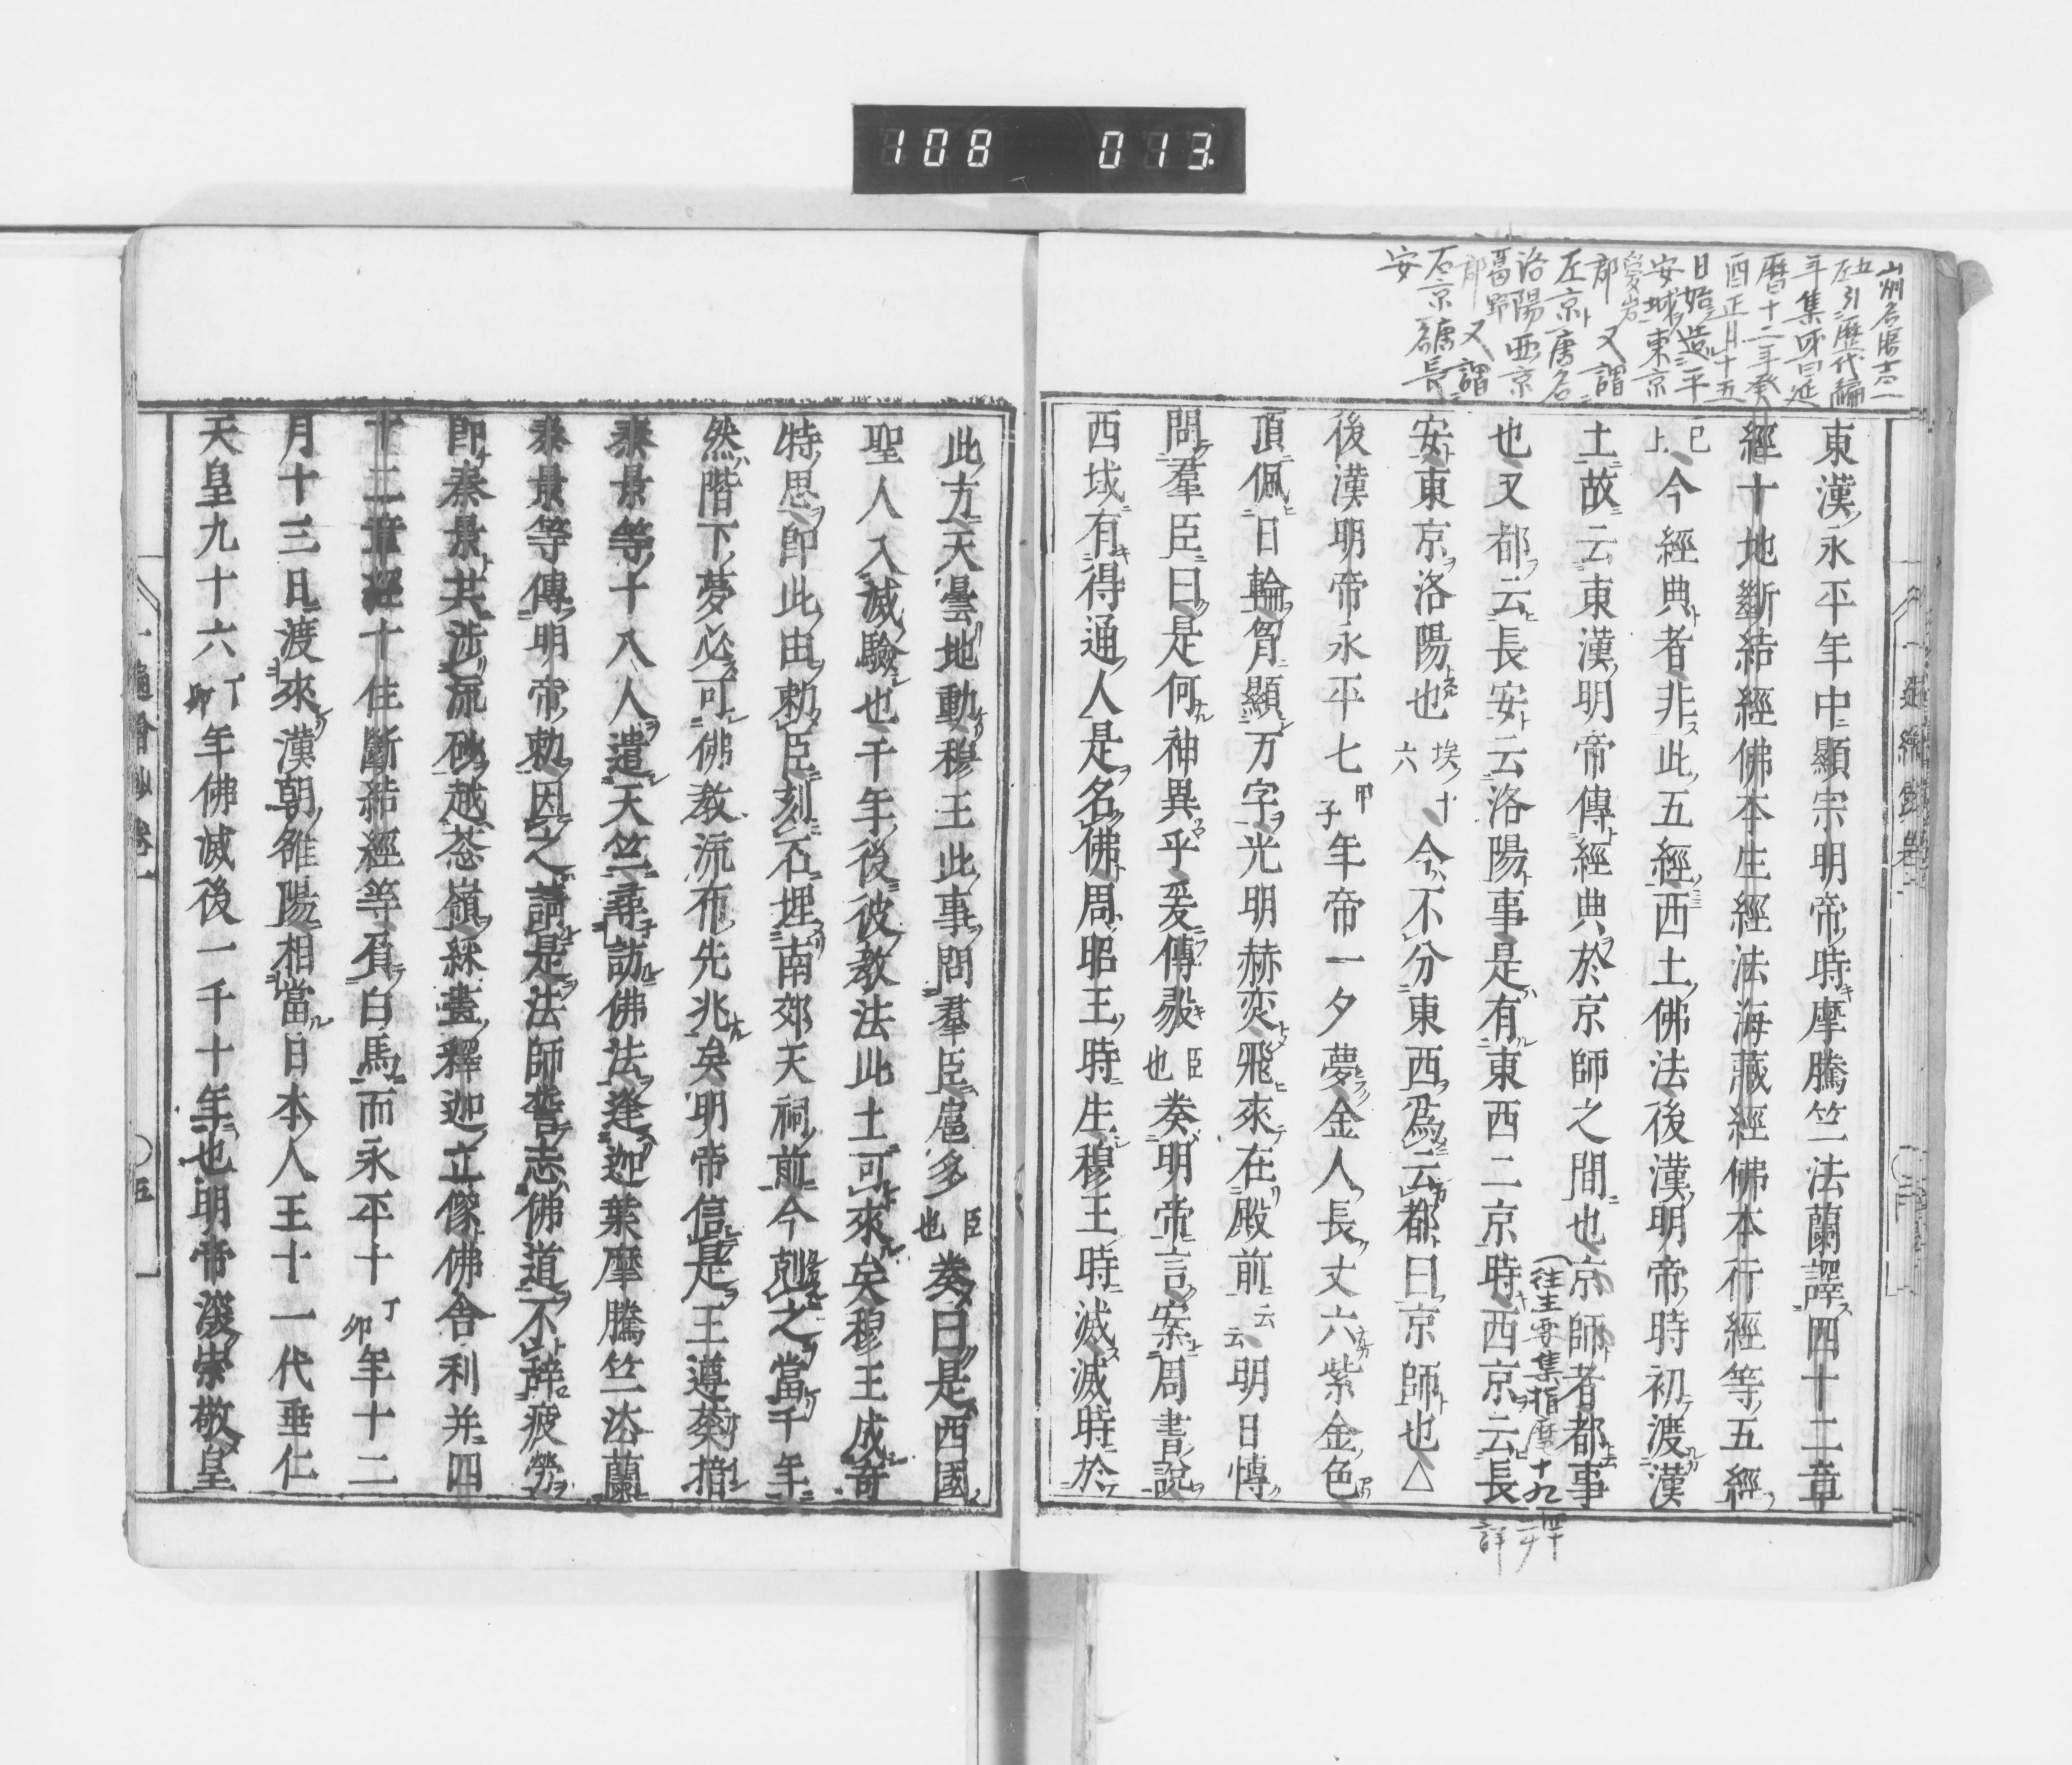 108 013
山州名勝志一
五
左引歴代編
年集成曰延
暦十二年癸
酉正月十五
日始造平
安城東京
愛宕
郡 又謂
左京唐名
洛陽西京
葛野
郡 又謂
右京唐名長
安
東漢永平年中顯宗明帝時摩騰竺法蘭譯四十二章
經十地斷結經佛本生經法海藏經佛本行經等五經
已上今經典者非此五經西土佛法後漢明帝時初渡漢
土故云東漢明帝傳經典於京師之間也京師者都事
往生要集指麾十九
也又都云長安云洛陽事是有東西二京時西京云長
安東京洛陽也埃十六今不分東西爲云都曰京師也△
後漢明帝永平七甲子年帝一夕夢金人長丈六紫金色
頂佩日輪胷顯万字光明赫奕飛來在殿前云云明日愽
問羣臣曰是何神異乎爰傳毅臣也奏明帝言案周書說
西域有得通人是名佛周昭王時生穆王時滅滅時於
此方天曇地動穆王此事問羣臣扈多臣也奏曰是西國
聖人入滅驗也千年後彼教法此土可來矣穆王成奇
特思即此由勅臣刻石埋南郊天祠前今剋之當千年
然階下夢必可佛教流布先兆矣明帝信是王遵蔡愔
秦景等十八人遣天竺尋訪佛法逢迦葉摩騰竺法蘭
秦景等傳明帝勅因之請是法師誓志佛道不辭疲勞
即秦景共渉流砂越葱嶺綵畫釋迦立像佛舎利并四
十二章經十住斷結經等負白馬而永平十丁卯年十二
月十三日渡來漢朝雒陽相當日本人王十一代垂仁
天皇九十六丁卯年佛滅後一千十年也明帝深崇敬皇